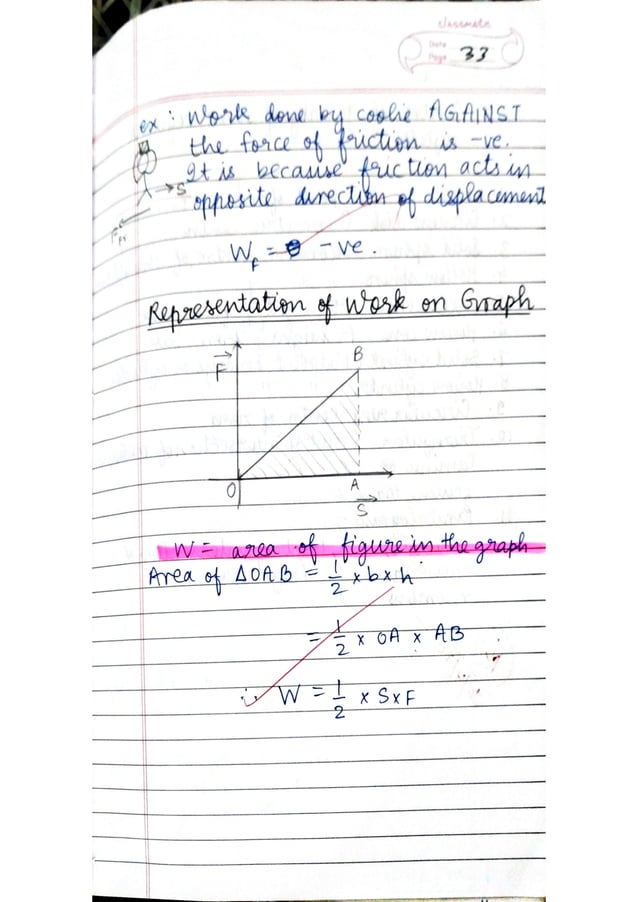 classmate
Date
Page 33
ex : Work done by coolie AGAINST
the force of friction is -ve.
It is because friction acts in
opposite direction of displacement
→S
Ffr
Wf = -ve.
Representation of Work on Graph
F
B
O
A
S
W = area of figure in the graph
Area of ΔOAB = 1/2 × b × h
= 1/2 × OA × AB
∴ W = 1/2 × S × F